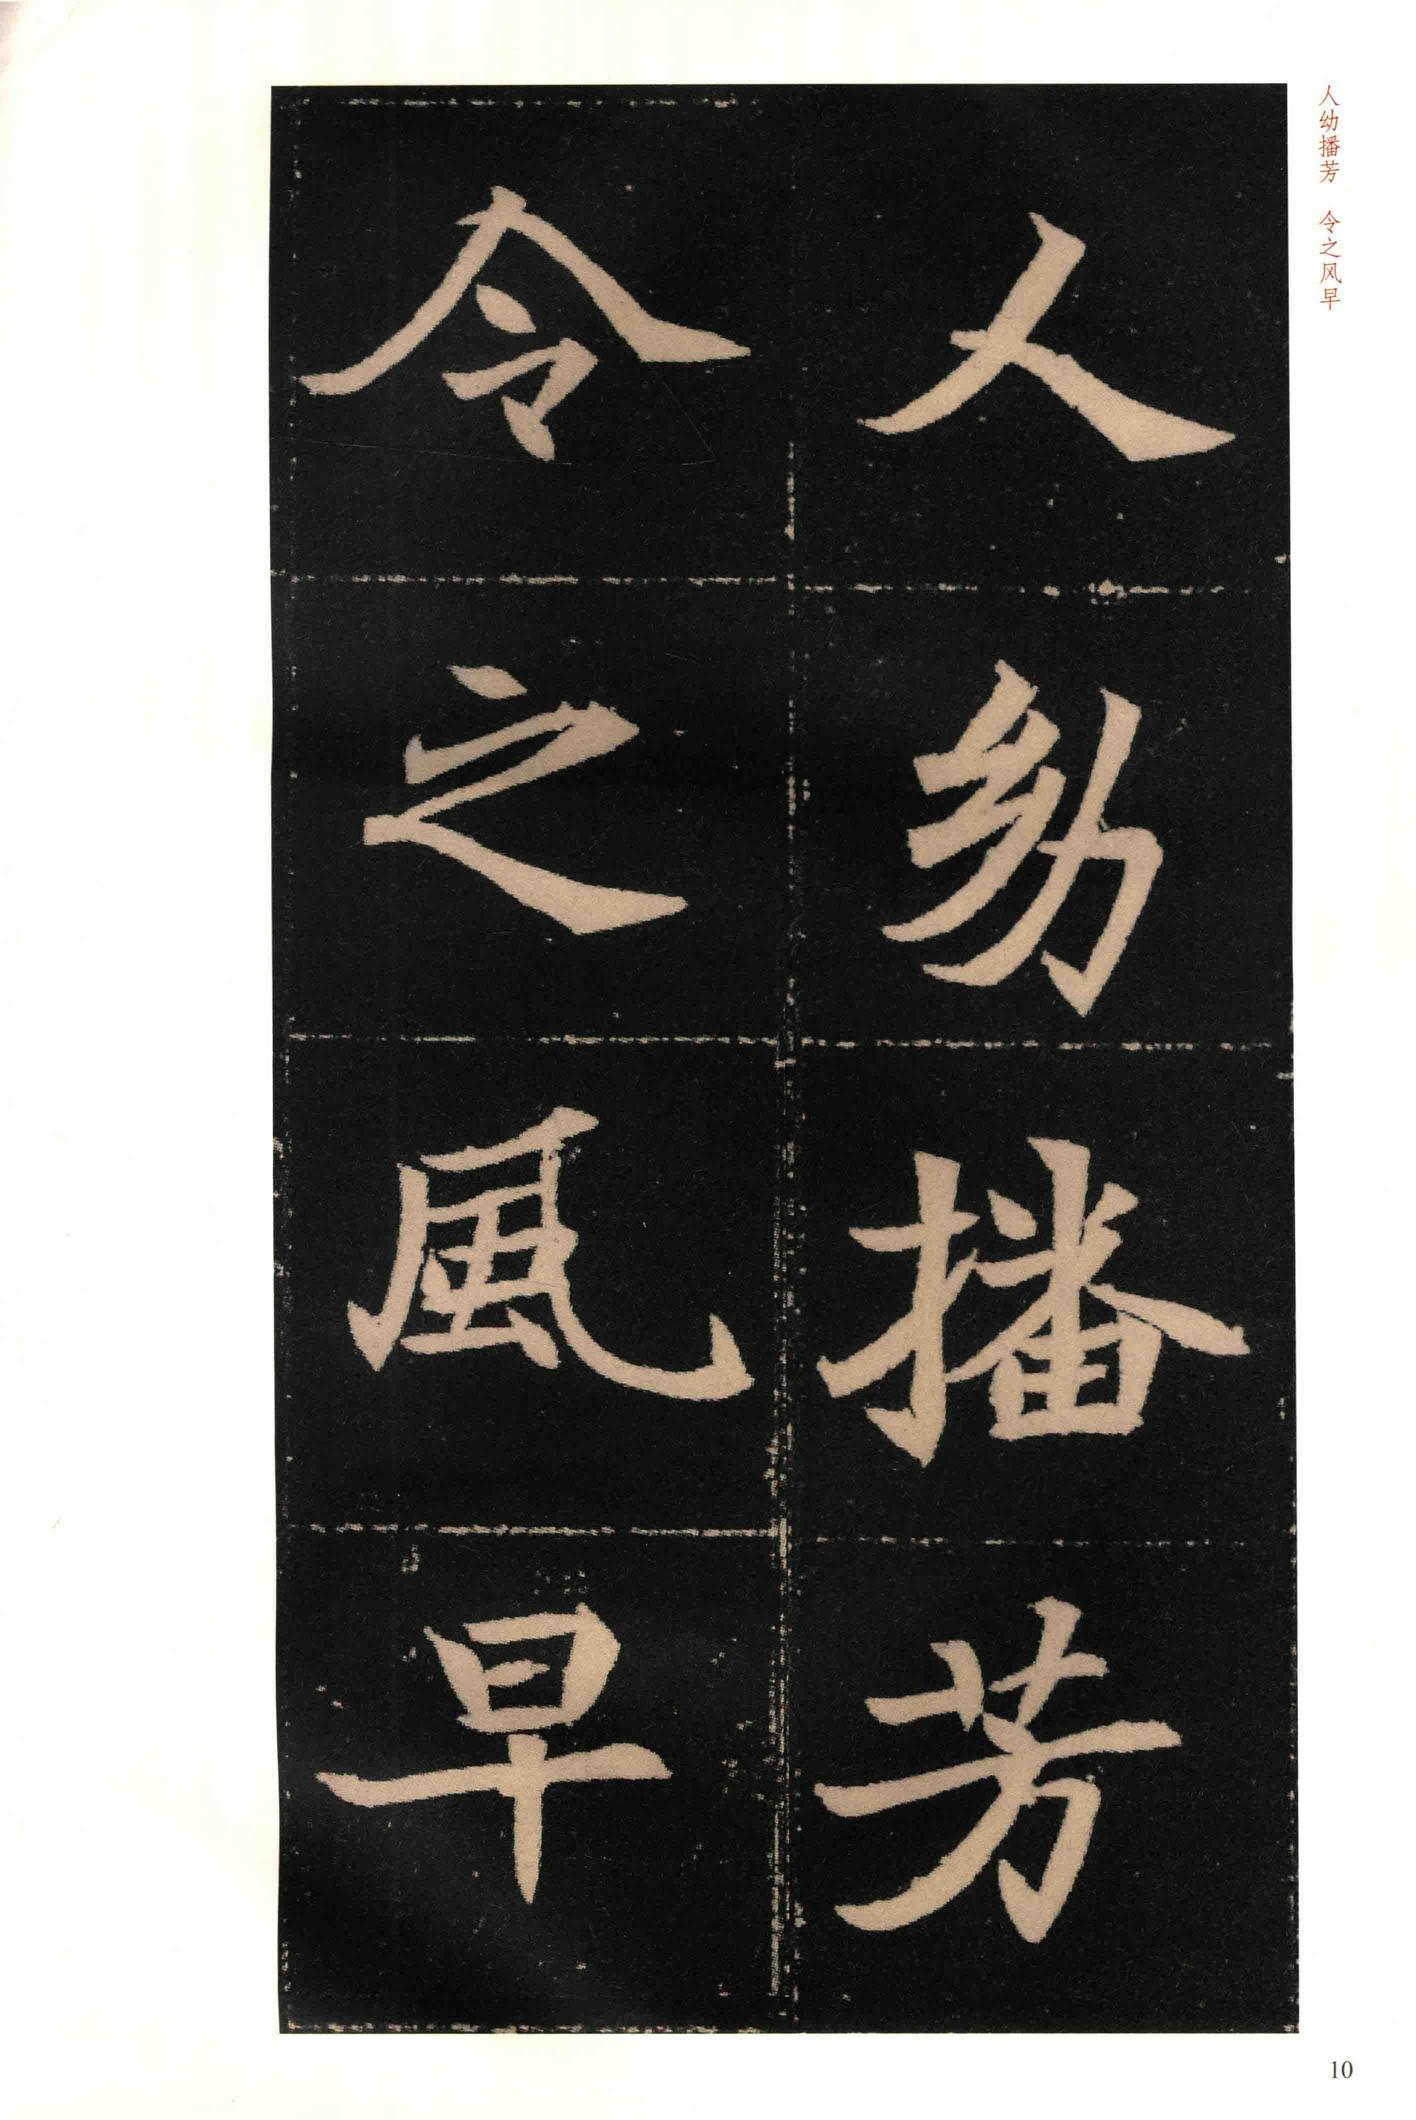 人幼播芳 令之风早
人幼播芳
令之風早
10